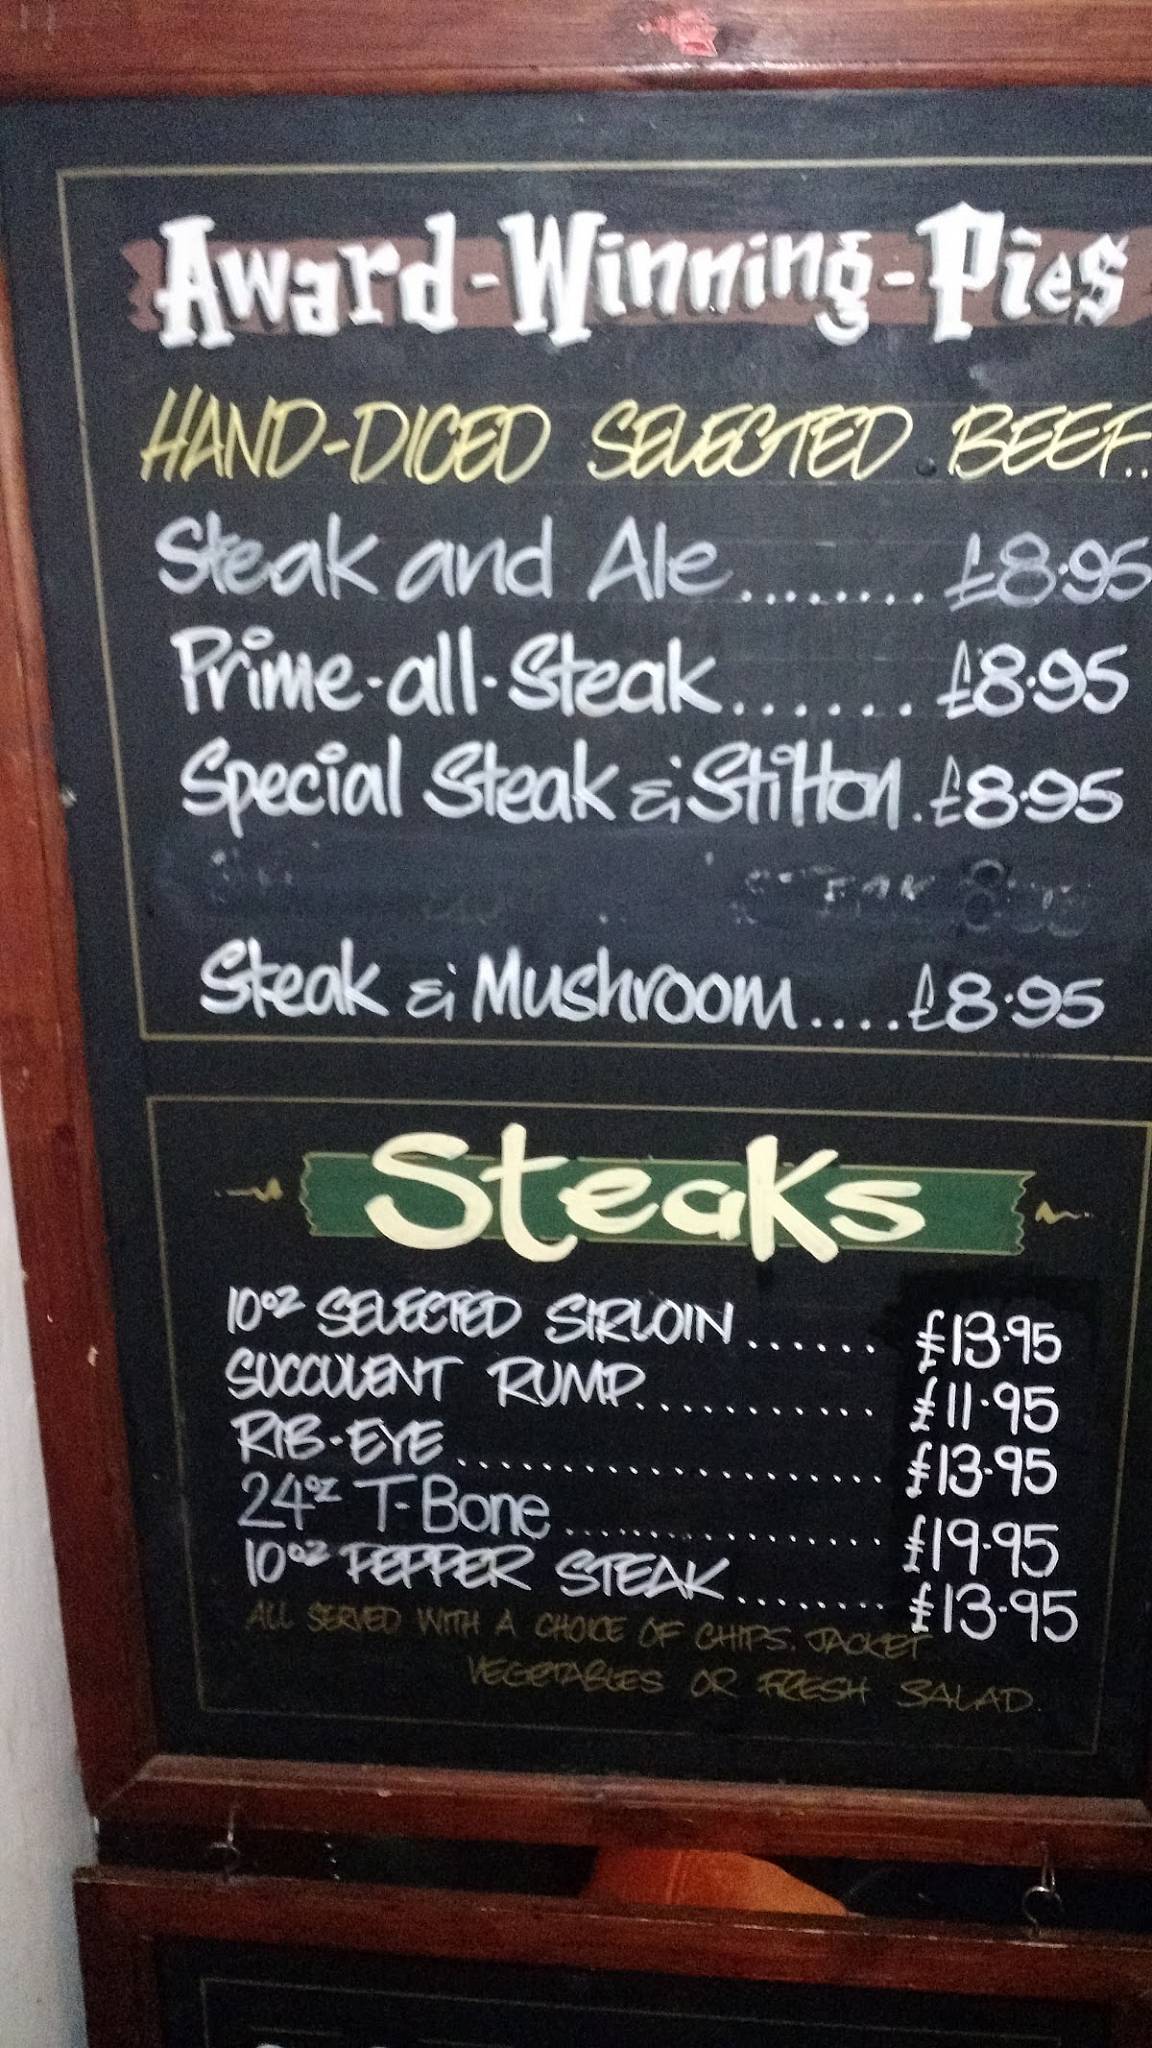 Award-Winning-Pies
HAND-DICED SELECTED BEEF..
Steak and Ale........ £8.95
Prime-all-Steak....... £8.95
Special Steak & Stilton. £8.95
Steak & Mushroom.... £8.95
Steaks
10oz SELECTED SIRLOIN...... £13.95
SUCCULENT RUMP........... £11.95
RIB-EYE..................... £13.95
24oz T-Bone................. £19.95
10oz PEPPER STEAK........ £13.95
ALL SERVED WITH A CHOICE OF CHIPS. JACKET
VEGETABLES OR FRESH SALAD.